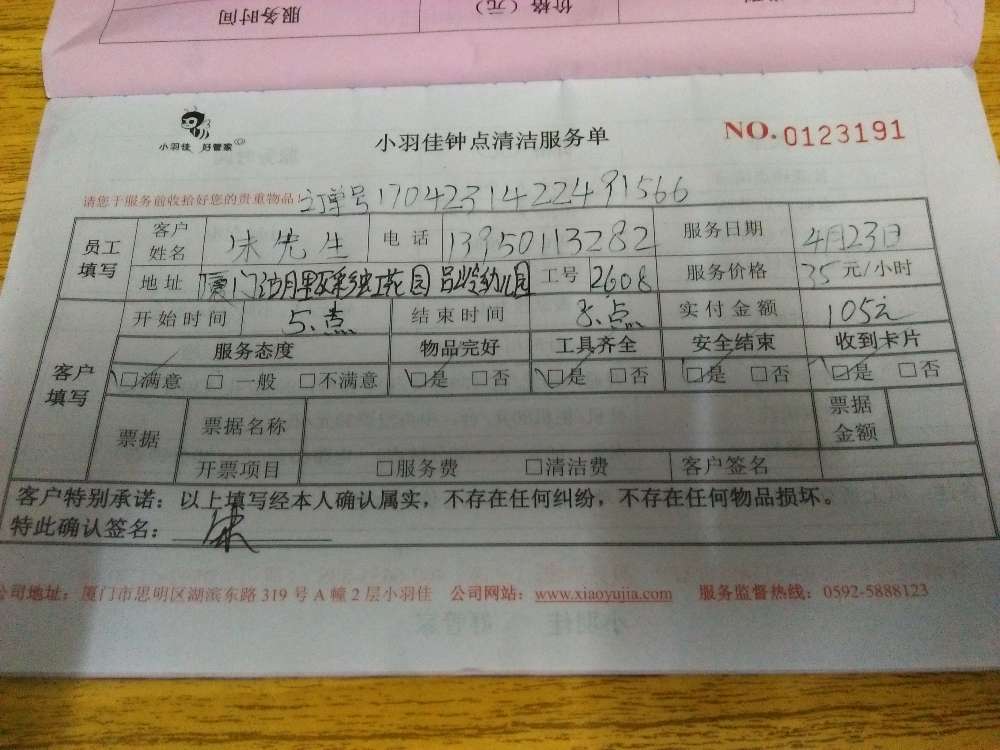 服务时间 价格（元）
小羽佳 好管家
小羽佳钟点清洁服务单
NO. 0123191
请您于服务前收拾好您的贵重物品！ 订单号
员工填写 客户姓名 先生 电话 13950113282 服务日期 4月23日
地址 工号 2608 服务价格 35 元/小时
客户填写 开始时间 5点 结束时间 8点 实付金额 105元
服务态度 物品完好 工具齐全 安全结束 收到卡片
□满意 □一般 □不满意 □是 □否 □是 □否 □是 □否 □是 □否
票据 票据名称 票据金额
开票项目 □服务费 □清洁费 客户签名
客户特别承诺：以上填写经本人确认属实，不存在任何纠纷，不存在任何物品损坏。
特此确认签名：
公司地址：厦门市思明区湖滨东路 319 号 A 幢 2 层小羽佳 公司网站：www.xiaoyujia.com 服务监督热线：0592-5888123